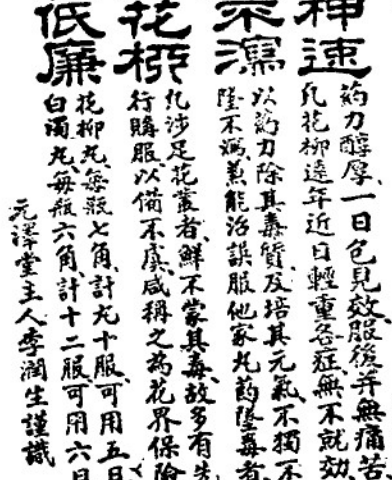 神速
藥力醇厚、一日包見效、服後并無痛苦
凡花柳遠年近日輕重各症、無不就効、
不瀉
以藥力除其毒質、及培其元氣、不獨一不
墜不瀉、兼能治誤服他家丸藥墜毒者、
花柳
凡涉足花叢者、鮮不蒙其毒、故多有先
行購服、以備不虞、咸稱之為花界保險
低廉
花柳丸、每瓶七角、計九十服、可用五日
白濁丸、每瓶六角、計十二服、可用六日
元澤堂主人李潤生謹識